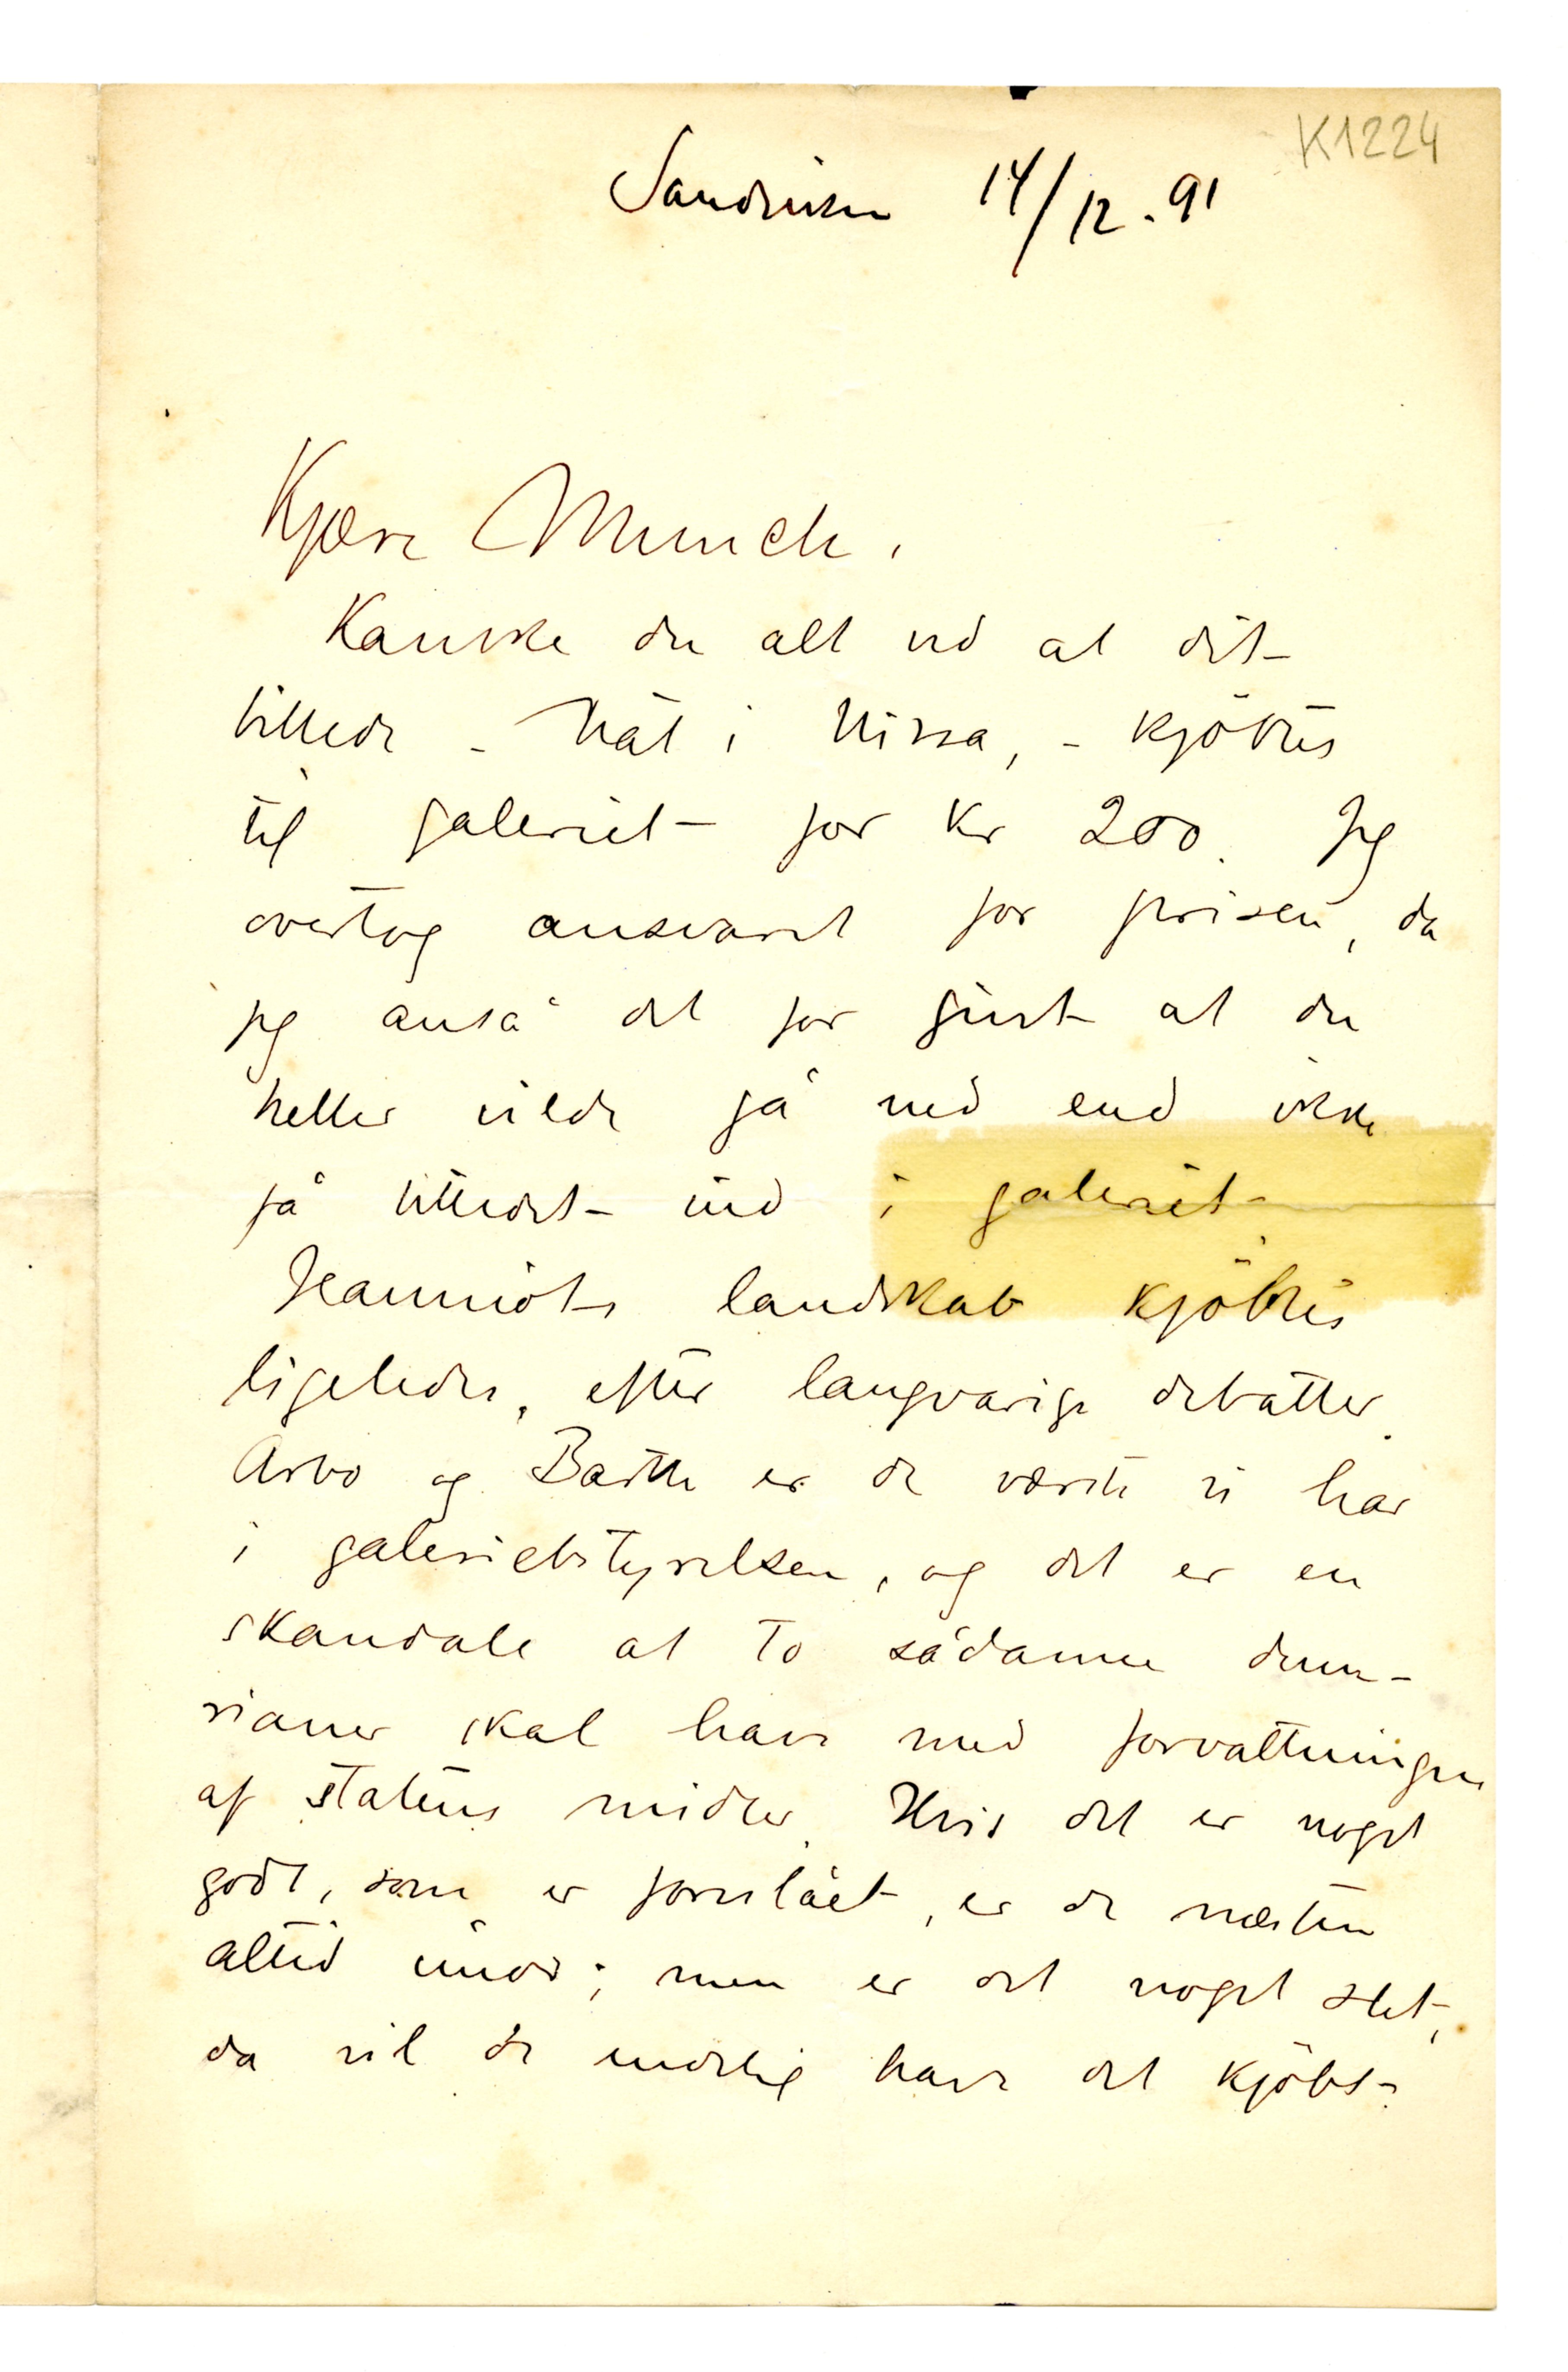 K1224
Sandviken 14/12. 91
Kjære Munch.
Kanske du alt ved at dit
billede - Nat i Nissa, - kjöbtes
til galeriet for kr 200. Jeg
overtog ansvaret for prisen, da
jeg anså det for givet at du
heller vilde gå ned end ikke
få billedet ind i galeriet.
Jeanniots landskab kjöbtes
ligeledes, efter langvarige debatter.
Arbo og Barth er de værste vi har
i galeribestyrelsen, og det er en
skandale at to sådanne dum-
rianer skal have med forvaltningen
af statens midler. Hvis det er noget
godt, som er foreslået, er de næsten
altid imod; men er det noget slet,
da vil de endelig have det kjöbt.